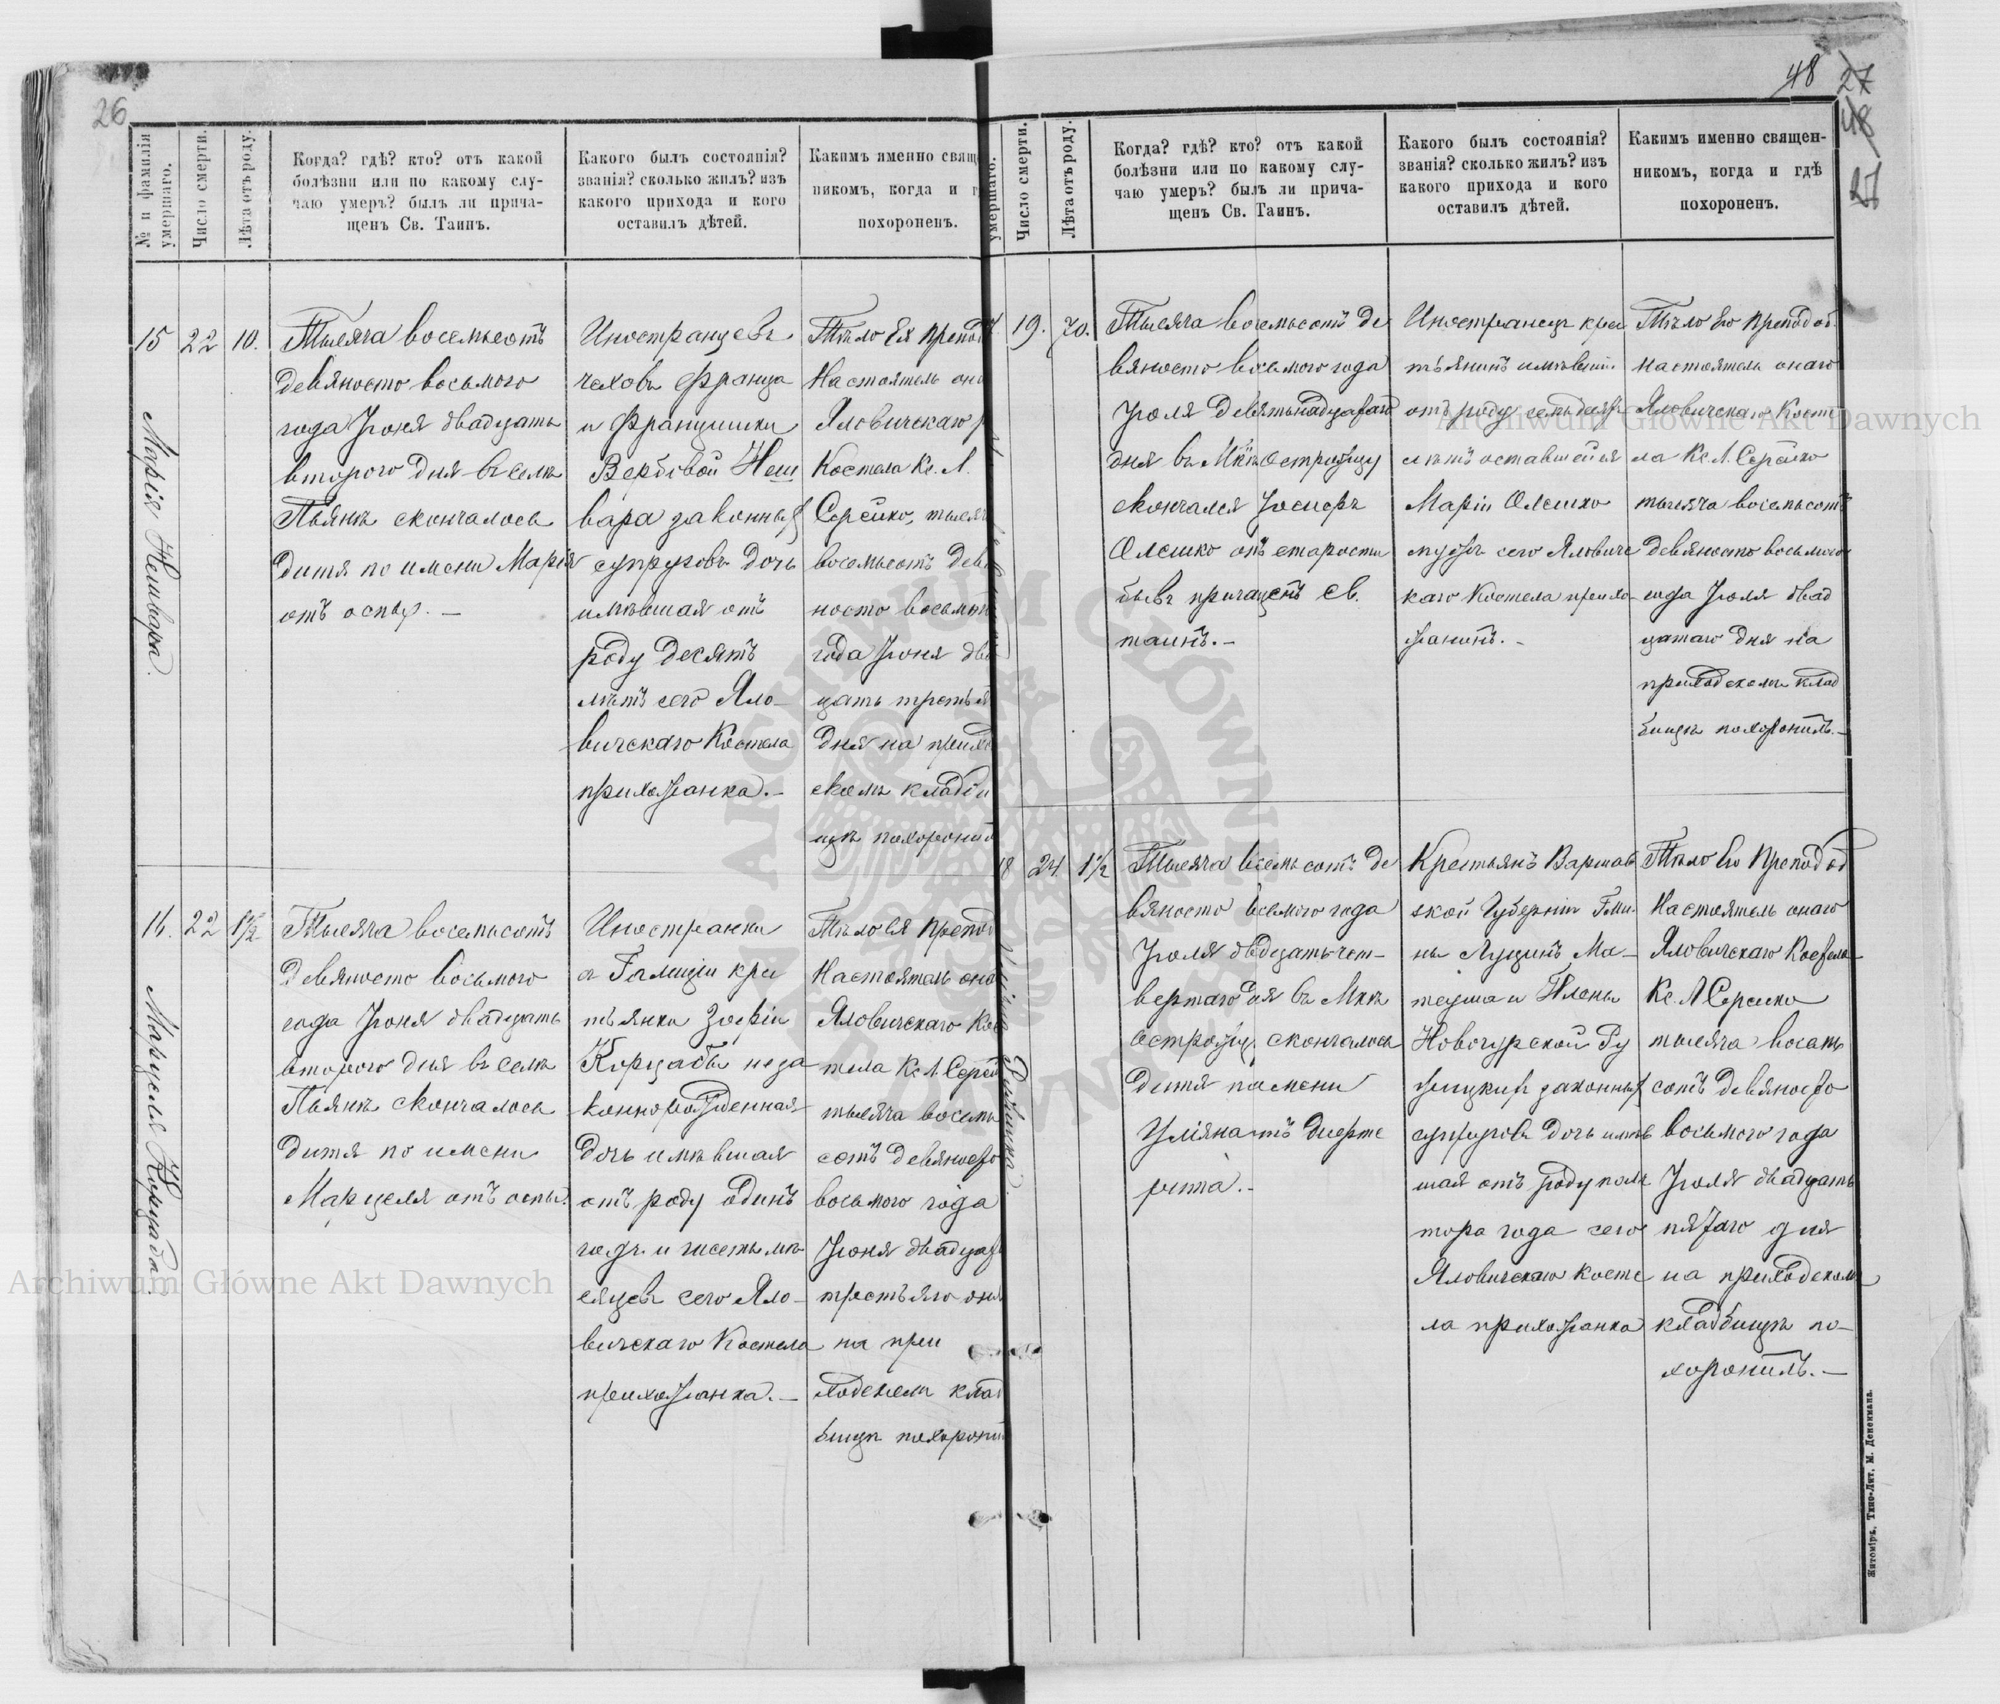 26
№ и фамилія умершаго.
Число смерти.
Лѣта отъ роду.
Когда? гдѣ? кто? отъ какой
болѣзни или по какому слу-
чаю умеръ? былъ ли прича-
щенъ Св. Таинъ.
Какого былъ состоянія?
званія? сколько жилъ? изъ
какого прихода и кого
оставилъ дѣтей.
Какимъ именно свящ
никомъ, когда и г
похороненъ.
15
Марія Нешвара.
22
10.
Тысяча восемьсотъ
девяносто восьмого
года Іюня двадцать
второго дня въ селѣ
Пьянѣ скончалось
дитя по имени Марія
отъ оспы. —
Иностранцевъ
чеховъ Франца
и Францишки
Вербовой Неш
вара законныхъ
супруговъ дочь
имѣвшая отъ
роду десять
лѣтъ сего Яло-
вичскаго Костела
прихожанка. —
Тѣло Ея Препод
Настоятель она
Яловичскаго
Костела Кс. Л.
Серейко, тысяч
восемьсотъ девя
носто восьмого
года Іюня два
цать третья
дня на прихо
скомъ кладби
щѣ похорони
16.
Марцеля Корцаба.
22
1½
Тысяча восемьсотъ
девяносто восьмого
года Іюня двадцать
второго дня въ селѣ
Пьянѣ скончалось
дитя по имени
Марцеля отъ оспы.
Иностранки
зъ Галиціи кре
тьянки Зофіи
Корцабы неза
коннорожденная
дочь имѣвшая
отъ роду одинъ
годъ и шесть мѣ
сяцевъ сего Яло-
вичскаго Костела
прихожанка. —
Тѣло Ея Препод
Настоятель она
Яловичскаго Кос
тела Кс. Л. Серей
тысяча восемь
сотъ девяносто
восьмого года
Іюня двадцать
третьяго дня
на при
ходскомъ клад
бищѣ похорони
48
27
48
27
умершаго.
Число смерти.
Лѣта отъ роду.
Когда? гдѣ? кто? отъ какой
болѣзни или по какому слу-
чаю умеръ? былъ ли прича-
щенъ Св. Таинъ.
Какого былъ состоянія?
званія? сколько жилъ? изъ
какого прихода и кого
оставилъ дѣтей.
Какимъ именно священ-
никомъ, когда и гдѣ
похороненъ.
19.
70.
Тысяча восемьсотъ де
вяносто восьмого года
Іюля девятьнадцатаго
дня въ Мѣкѣ Острожцу
скончался Іосифъ
Олешко отъ старости
бывъ причащенъ Св.
таинъ. —
Иностранецъ крес
тьянинъ имѣвшій
отъ роду семьдесятъ
лѣтъ оставшейся
Маріи Олешко
мужъ сего Яловичс
каго Костела прихо-
жанинъ. —
Тѣло Его Преподоб.
Настоятель онаго
Яловичскаго Косте
ла Кс. Л. Серейко
тысяча восемьсотъ
девяносто восьмого
года Іюля двад
цатаго дня на
приходскомъ клад
бищѣ похоронилъ. —
18
24
1½
Тысяча восемьсотъ де
вяносто восьмого года
Іюля двадцать чет-
вертаго дня въ Мѣкѣ
Острожцу скончалось
дитя по имени
Уліяна отъ дисенте
рита. —
Крестьянъ Варшав
ской Губерніи Гми-
ны Лущинъ Ма-
теуша и Елены
Новогурской Ру
жицкихъ законныхъ
супруговъ дочь имѣв
шая отъ роду пол
тора года сего
Яловичскаго косте
ла прихожанка
Тѣло Ея Преподоб
Настоятель онаго
Яловичскаго Костела
Кс. Л Серейко
тысяча восемь
сотъ девяносто
восьмого года
Іюля двадцать
пятаго дня
на приходскомъ
кладбищѣ по-
хоронилъ. —
Житоміръ, Типо-Лит. М. Дененмана.
Archiwum Główne Akt Dawnych
Archiwum Główne Akt Dawnych